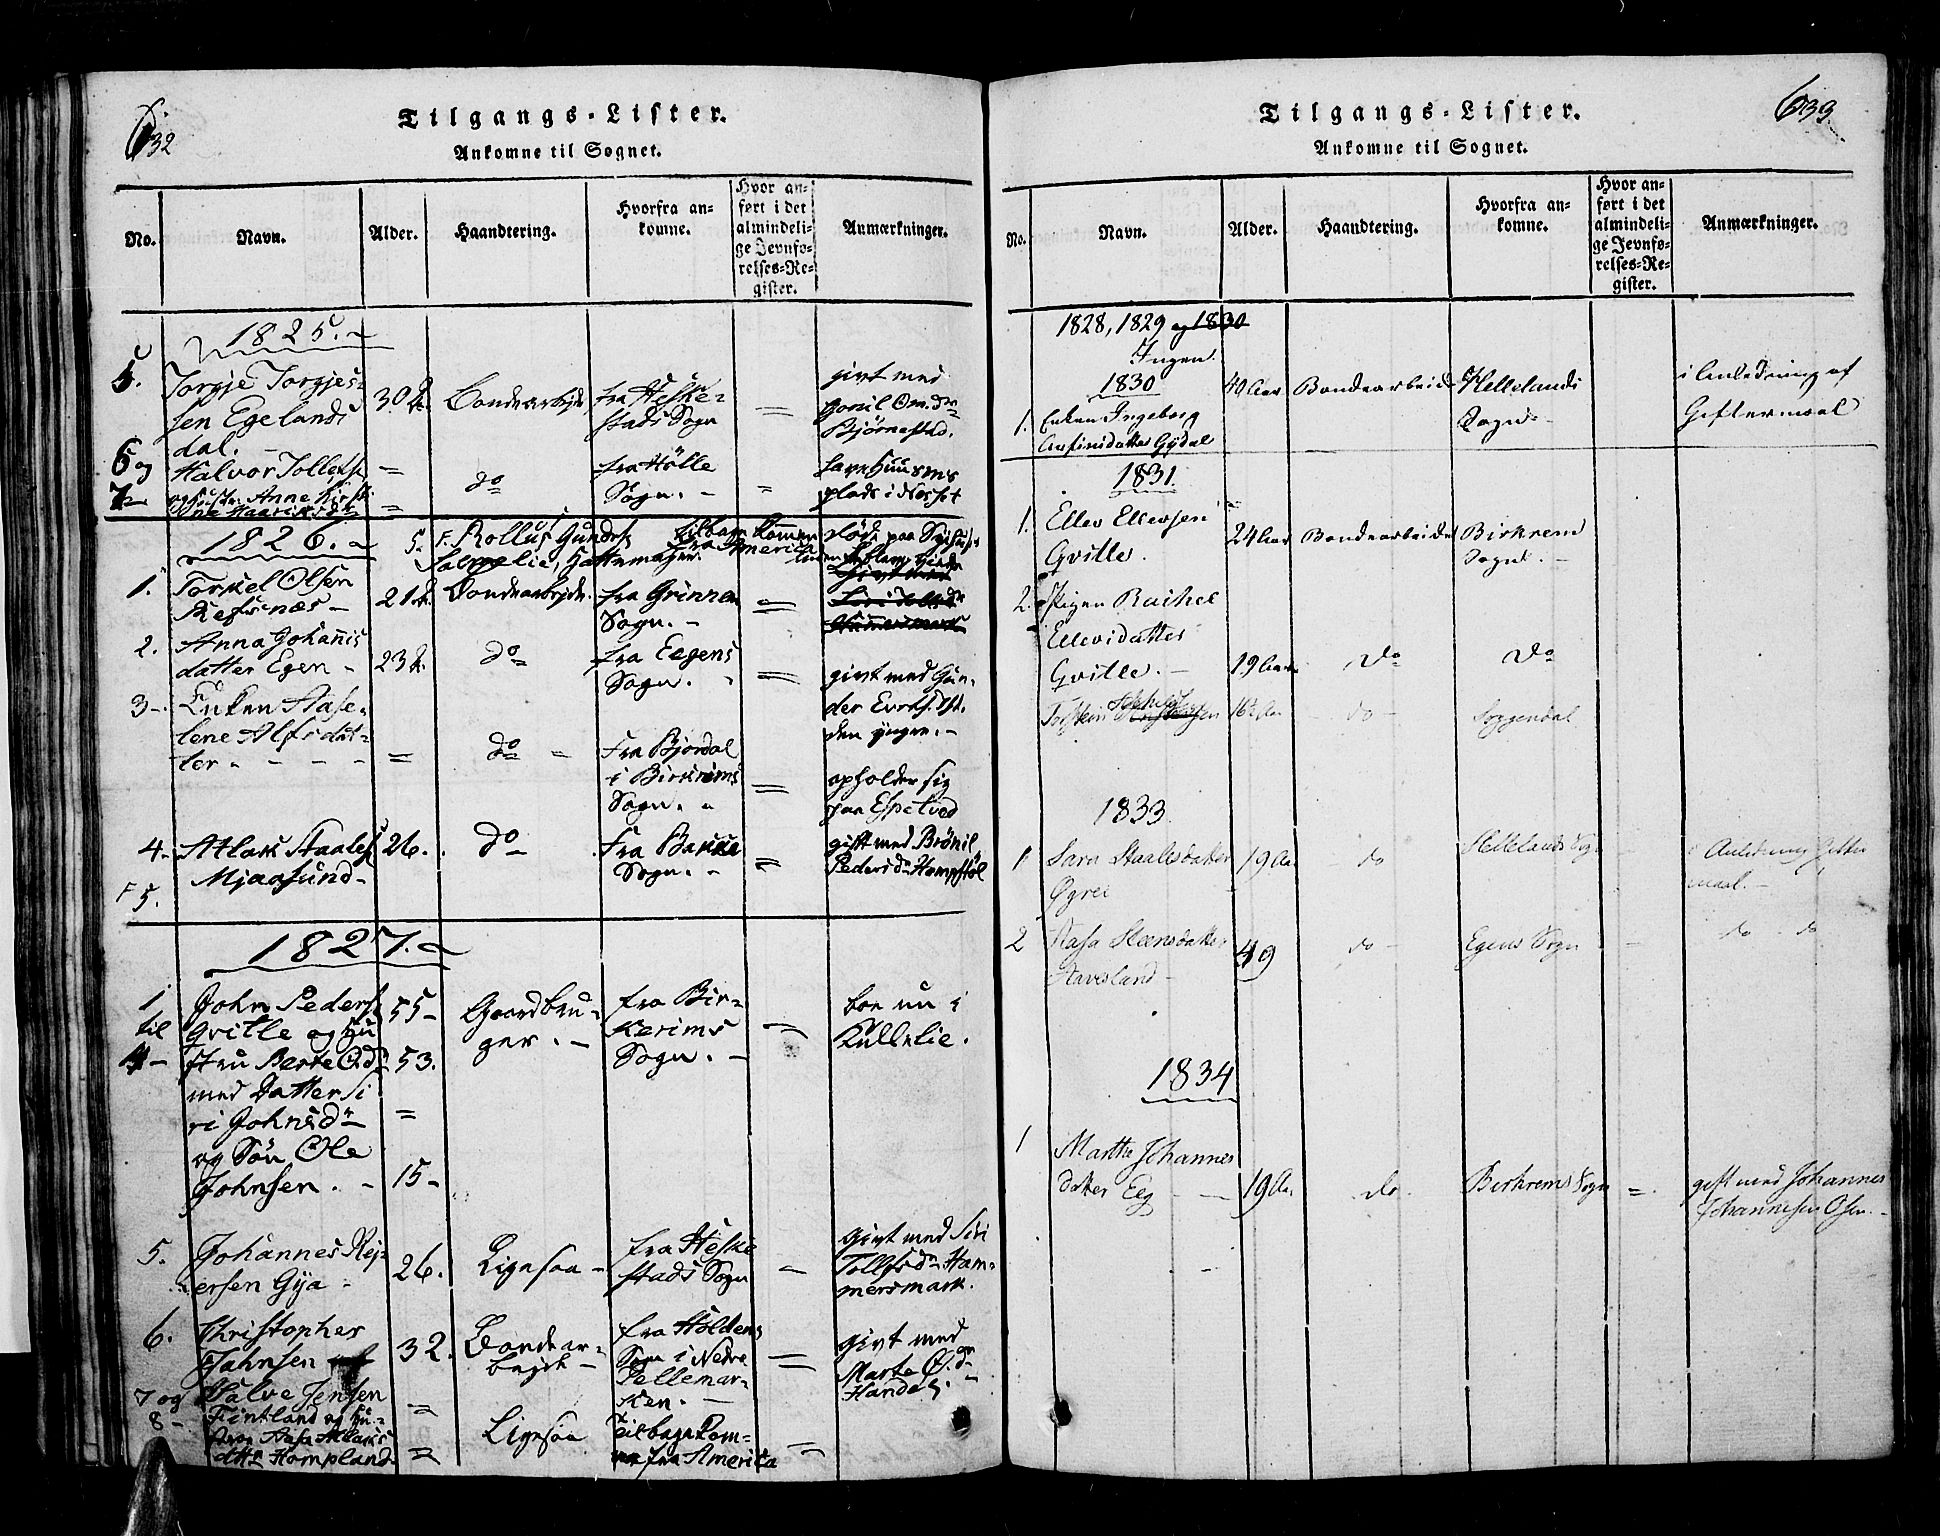 632
Tilgangs-Lister.
Ankomne til Sognet.
No.
Navn.
Alder.
Haandtering.
Hvorfra an-
komne.
Hvor an-
ført i det
almindeli-
ge Jevnfø-
relses-Re-
gister.
Anmærkninger.
1825.
5.
Torgje Torgjes-
sen Egelands
dal.
30
Bondearbejde
fra Heske-
stads Sogn
givt med
Bjørnestad.
6 og
7
Halvor Tollefs
Anne
do
fra Hølle
Sogn. -
plads i Nesset
1826.
5.
Rollus Gunders
tilbage kommen
fra America
1.
Torkel Olsen
Refsnæs -
21
Bondearbejde.
fra Grinnem
Sogn. -
2.
Anna Johannis
datter Egen -
23
do
fra Eegens
Sogn.
givt med Gun-
der
den yngre. -
3 -.
Enken Aase-
lene Alfsdat-
ter - - - -
=
do =
Fra Bjordal
i Birkrims
Sogn.
=
opholder sig
paa Espetved
4 -
Atlak Staales
Mjaasund -
26.
do
Fra Bakke
Sogn. -
=
gift med Brønil
Peders d. Hompstøl
F 5.
1827.
1
til
4 -
John Peders
Qville og Hu
stru Berte O. d.
med Datter Si
ri Johnsd
og Søn Ole
Johnsen. -
55 -
53.
=
15 -
Gaardbru-
ger. -
fra Bir-
kerims
Sogn. -
=
boe nu i
Kullelie.
5.
Johannes Rej-
ersen Gya -
26.
Ligesaa -
fra Heske
stads Sogn
=
givt med Siri
Tollfsd Ham-
mersmark.
6.
Christopher
Jahnsen
32.
Bondear-
bejde -
fra Holdens
Sogn i Nedre
Tellemar-
ken. -
=
givt med
Marte O. d.
Handel.
7 og
8 -
Salve Jensen
Fintland og Hu-
stru Aasa Atlaks
datter Hompland
=
=
Ligesaa
Tilbagekom-
ne fra America
=
633
Tilgangs-Lister.
Ankomne til Sognet.
No.
Navn.
Alder.
Haandtering.
Hvorfra an-
komne.
Hvor an-
ført i det
almindeli-
ge Jevnfø-
relses-Re-
gister.
Anmærkninger.
1828, 1829 og 1830
Ingen.
1830
1.
Enken Ingeborg
Gydal
40 Aar
Bondearbeide
Hellelands
Sogn. -
i Anledning af
Giftermaal
1831.
1.
Ellev Ellevsen
Qville.
24 Aar
Bondearbeide
Birkrem
Sogn. -
2.
Pigen Rachel
Ellevsdatter
Qville. -
19 Aar
do
do
Torstein
16
- do -
Soggendal
1833.
1
Sara Staalesdatter
Øgrei
19 Aar
do
Hellelands Sogn
i Anledning Gifter
maal. -
2
Aasa Steensdatter
49
do -
Egens Sogn
do do
1834
1
Marthe Johannes
datter Eeg -
19 Aar
do
Birkrems Sogn
=
gift med Johannes
Johannesen Osen. -